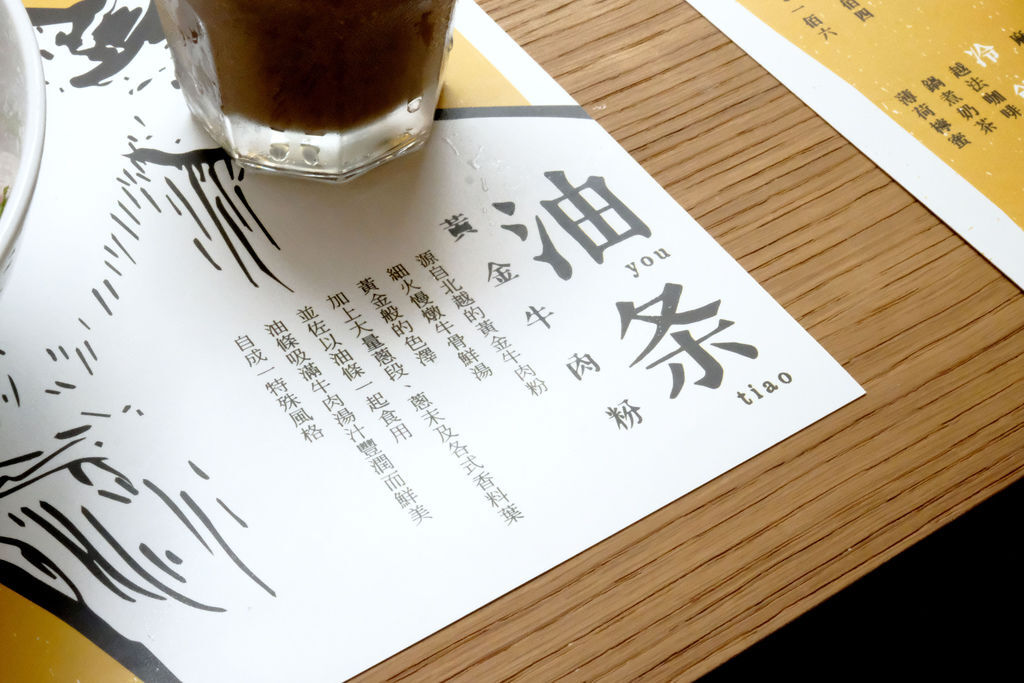 油条
you
tiao
黃金牛肉粉
源自北越的黃金牛肉粉
細火慢燉牛骨鮮湯
黃金般的色澤
加上大量蔥段、蔥末及各式香料葉
並佐以油條一起食用
油條吸滿牛肉湯汁豐潤而鮮美
自成一特殊風格
冷
越法咖啡
鍋煮奶茶
薄荷檸蜜
佰四
一佰六